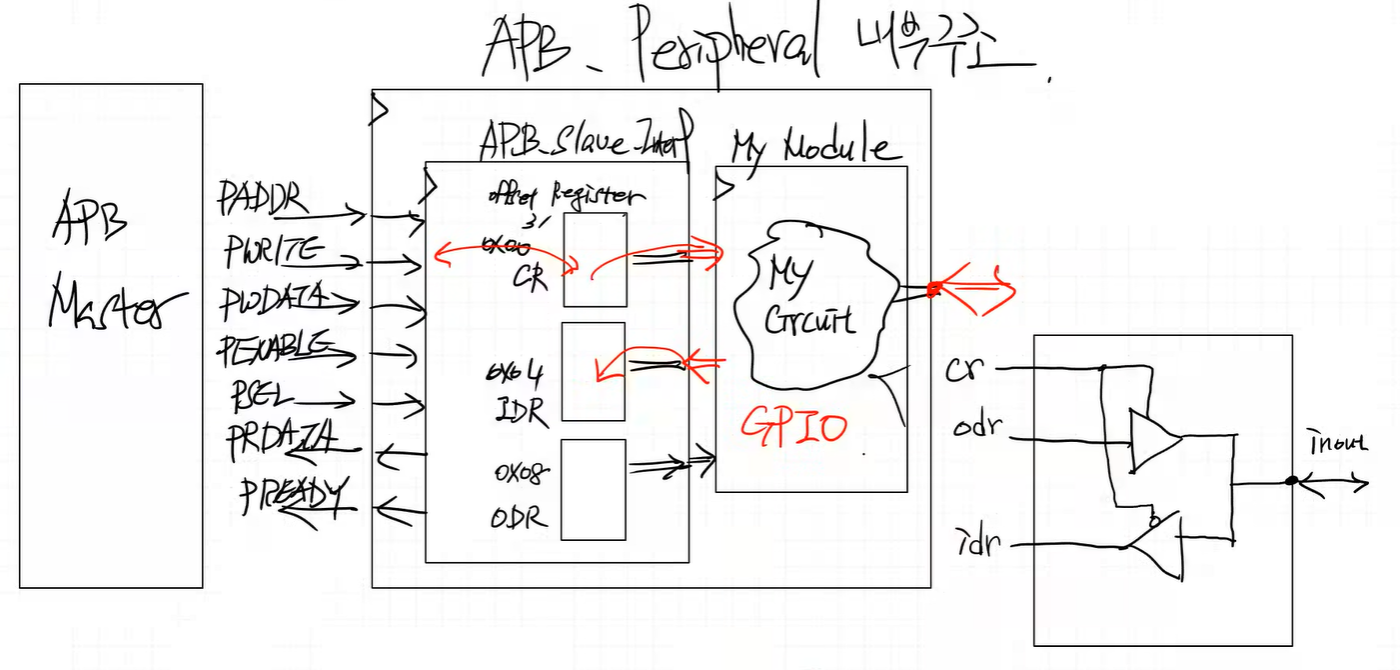 APB_Peripheral 내부구조.
APB
Master
PADDR
PWRITE
PWDATA
PENABLE
PSEL
PRDATA
PREADY
APB_Slave_Interf
offset Register
31
0x00
CR
0x04
IDR
0x08
ODR
My Module
My
Circuit
GPIO
cr
odr
idr
inout